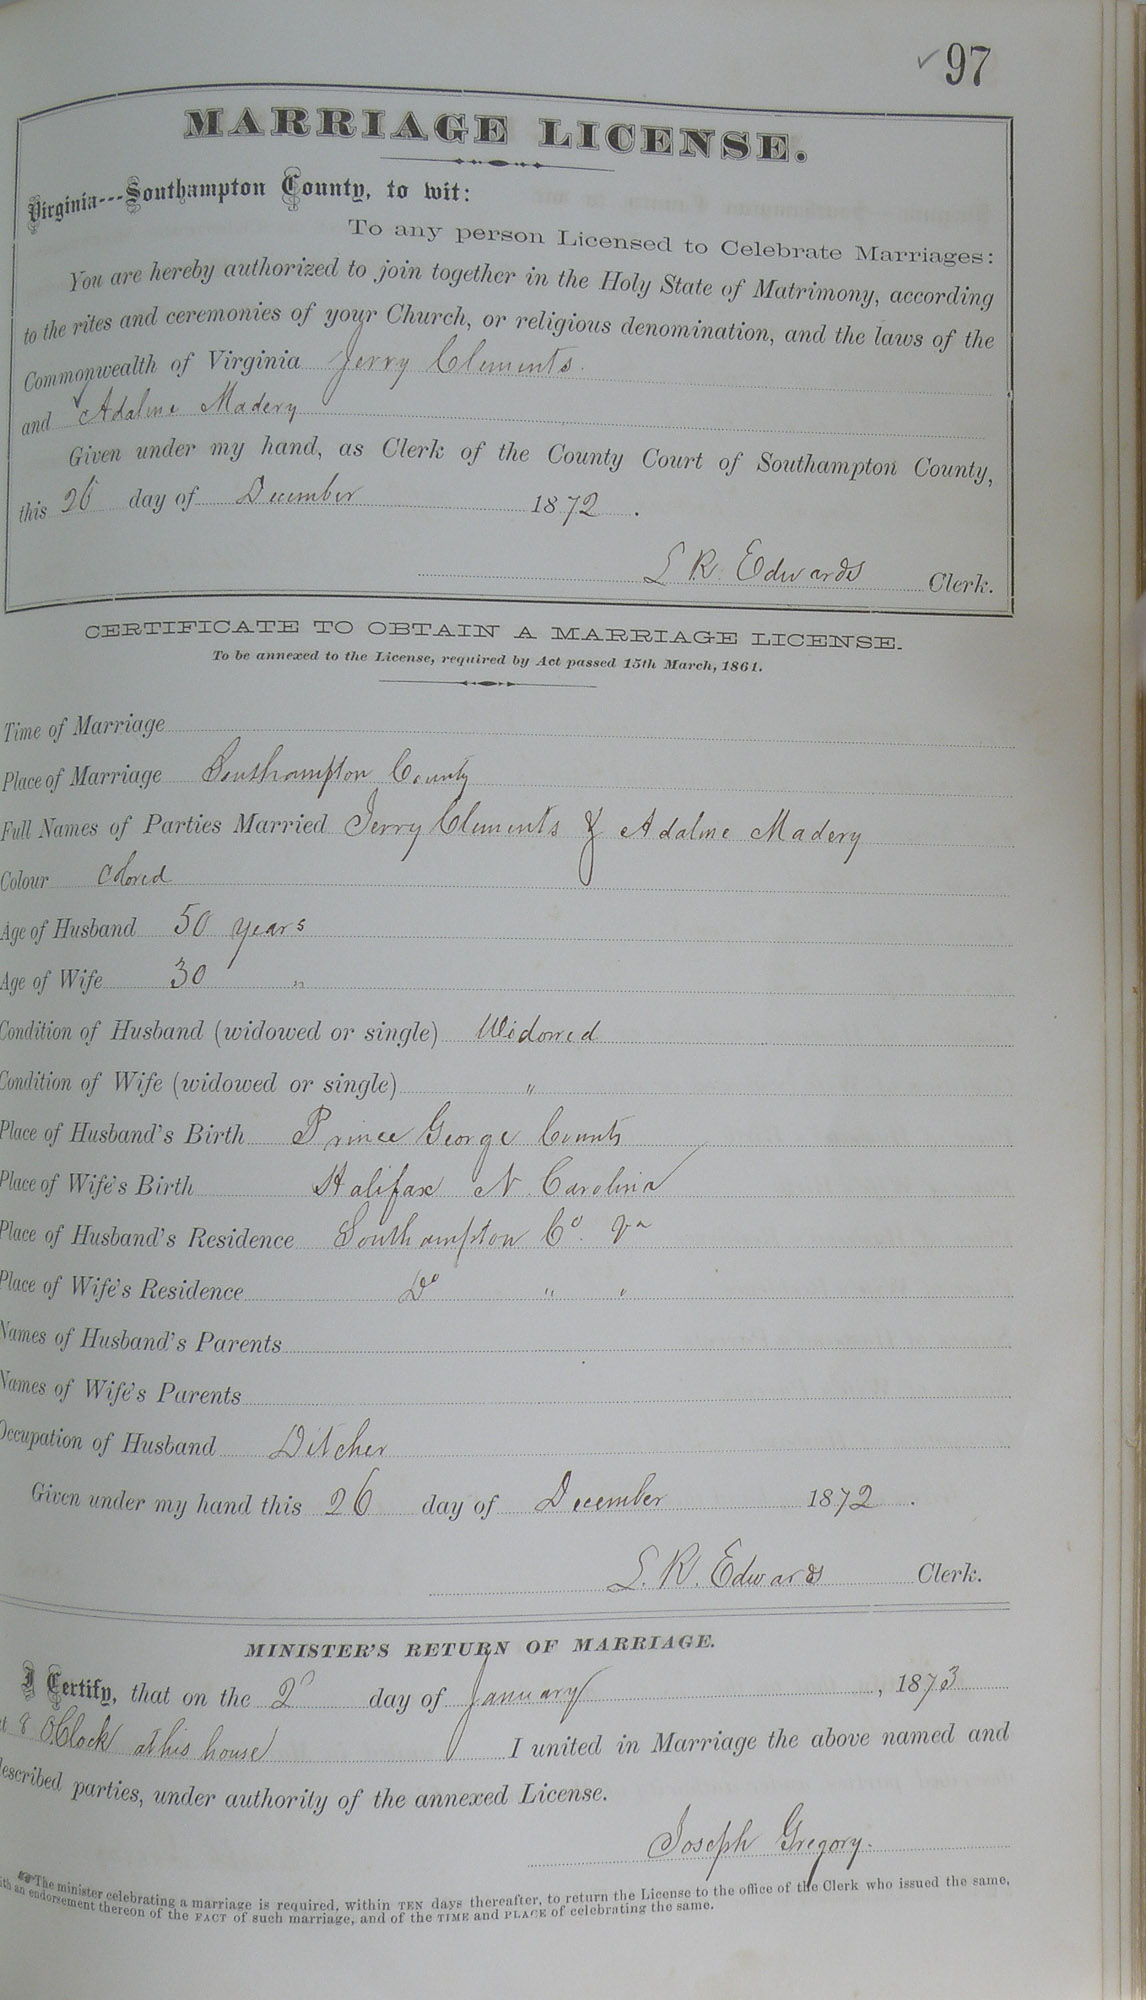 ✓97
MARRIAGE LICENSE.
Virginia---Southampton County, to wit:
To any person Licensed to Celebrate Marriages:
You are hereby authorized to join together in the Holy State of Matrimony, according
to the rites and ceremonies of your Church, or religious denomination, and the laws of the
Commonwealth of Virginia Jerry Clements.
and Adaline Madery
Given under my hand, as Clerk of the County Court of Southampton County,
this 26 day of December 1872.
L R. Edwards Clerk.
CERTIFICATE TO OBTAIN A MARRIAGE LICENSE.
To be annexed to the License, required by Act passed 15th March, 1861.
Time of Marriage
Place of Marriage Southampton County
Full Names of Parties Married Jerry Clements & Adaline Madery
Colour Colored
Age of Husband 50 years
Age of Wife 30 "
Condition of Husband (widowed or single) Widowed
Condition of Wife (widowed or single) "
Place of Husband's Birth Prince George County
Place of Wife's Birth Halifax N. Carolina
Place of Husband's Residence Southampton Co. Va
Place of Wife's Residence Do " "
Names of Husband's Parents
Names of Wife's Parents
Occupation of Husband Ditcher
Given under my hand this 26 day of December 1872.
L. R. Edwards Clerk.
MINISTER'S RETURN OF MARRIAGE.
I Certify, that on the 2d day of January, 1873
at 8 O.Clock at his house I united in Marriage the above named and
described parties, under authority of the annexed License.
Joseph Gregory.
☞The minister celebrating a marriage is required, within TEN days thereafter, to return the License to the office of the Clerk who issued the same,
with an endorsement thereon of the FACT of such marriage, and of the TIME and PLACE of celebrating the same.